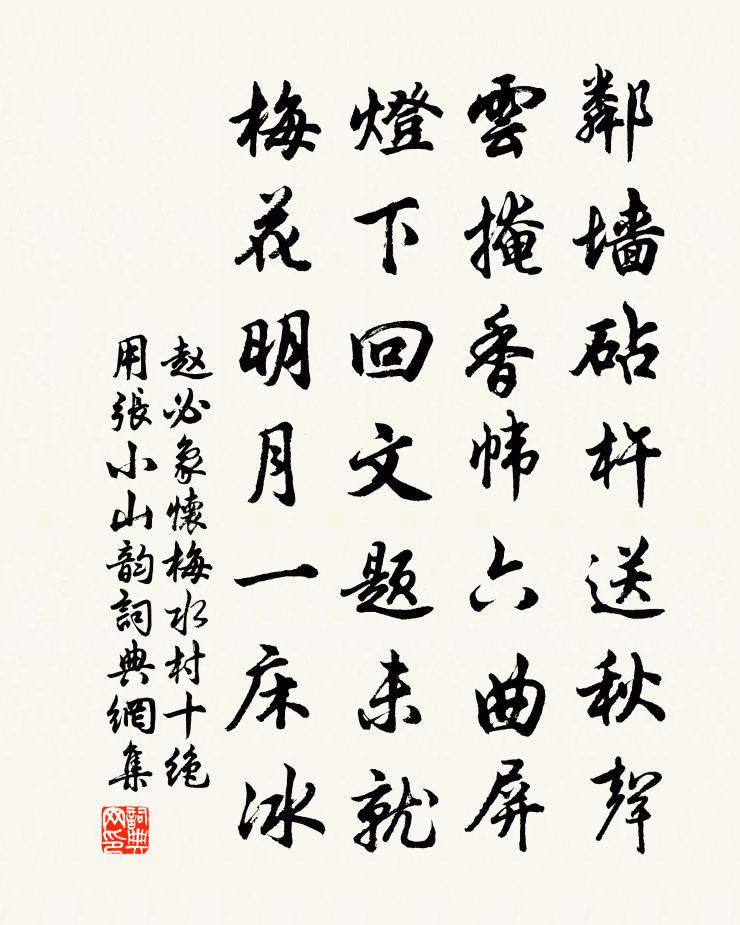 鄰墻砧杵送秋聲
雲掩香幃六曲屏
燈下回文題未就
梅花明月一床冰
赵必象懷梅水村十绝
用張小山韵詞典網集
詞典
网印